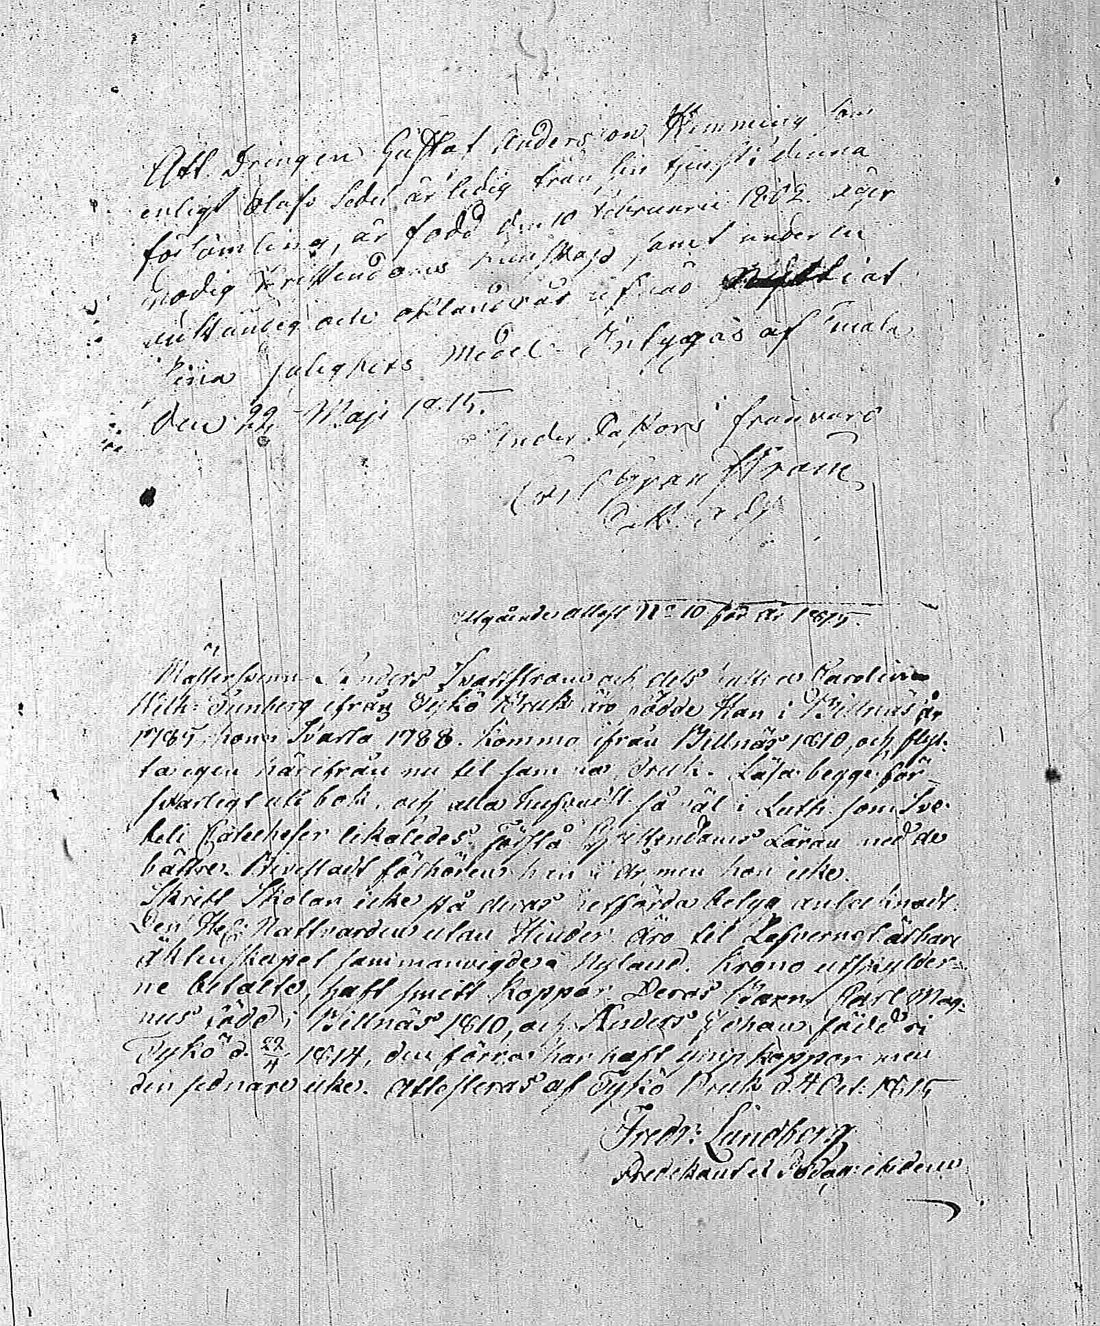 Att Drengen Gustaf Andersson Flemming som
enligt Slafs Sedel är ledig från sin tjenst i denna
församling, är född den 10 Februarii 1802. äger
nödig Kristendoms kunskap samt under en
anständig och oklandrad lefnad
sina salighets Medel. Intygas af
den 22 Maji 1815.
Under Pastors frånvaro
Utgående Attest No 10 för år 1815.
Mästersven Anders Svanström och dess hustru Carolina
Wilh: Tunberg ifrån Tykö Bruk äro födde Han i Billnäs år
1785, hon i Svarta 1788. Kommo ifrån Billnäs 1810, och flyt-
ta igen härifrån nu til samma Bruk. Läsa begge för-
svarligt uti bok, och alla hufvudst. så väl i Luth. som Sve-
belii Catecheser likaledes. Förstå Christendoms Läran med de
bättre. Bivistadt förhören han i år men hon icke.
Skrift Skolan icke på deras införda belyg antecknadt.
Den Hel. Nattvarden utan Hinder. äro til Lefvernet ärbare
äktenskapet sammanvigde i Nyland. Krono utskylder-
ne betalte, haft smitt koppor. Deras Barn Carl Mag-
nus född i Billnäs 1810, och Anders Johan född i
Tykö d. 22/4 1814, den förra har haft ymp koppor men
den sednare icke. Attesteras af Tykö Bruk d. 4 Oct. 1815
Fredr: Lundberg
Predikant et Pædag: ibidem